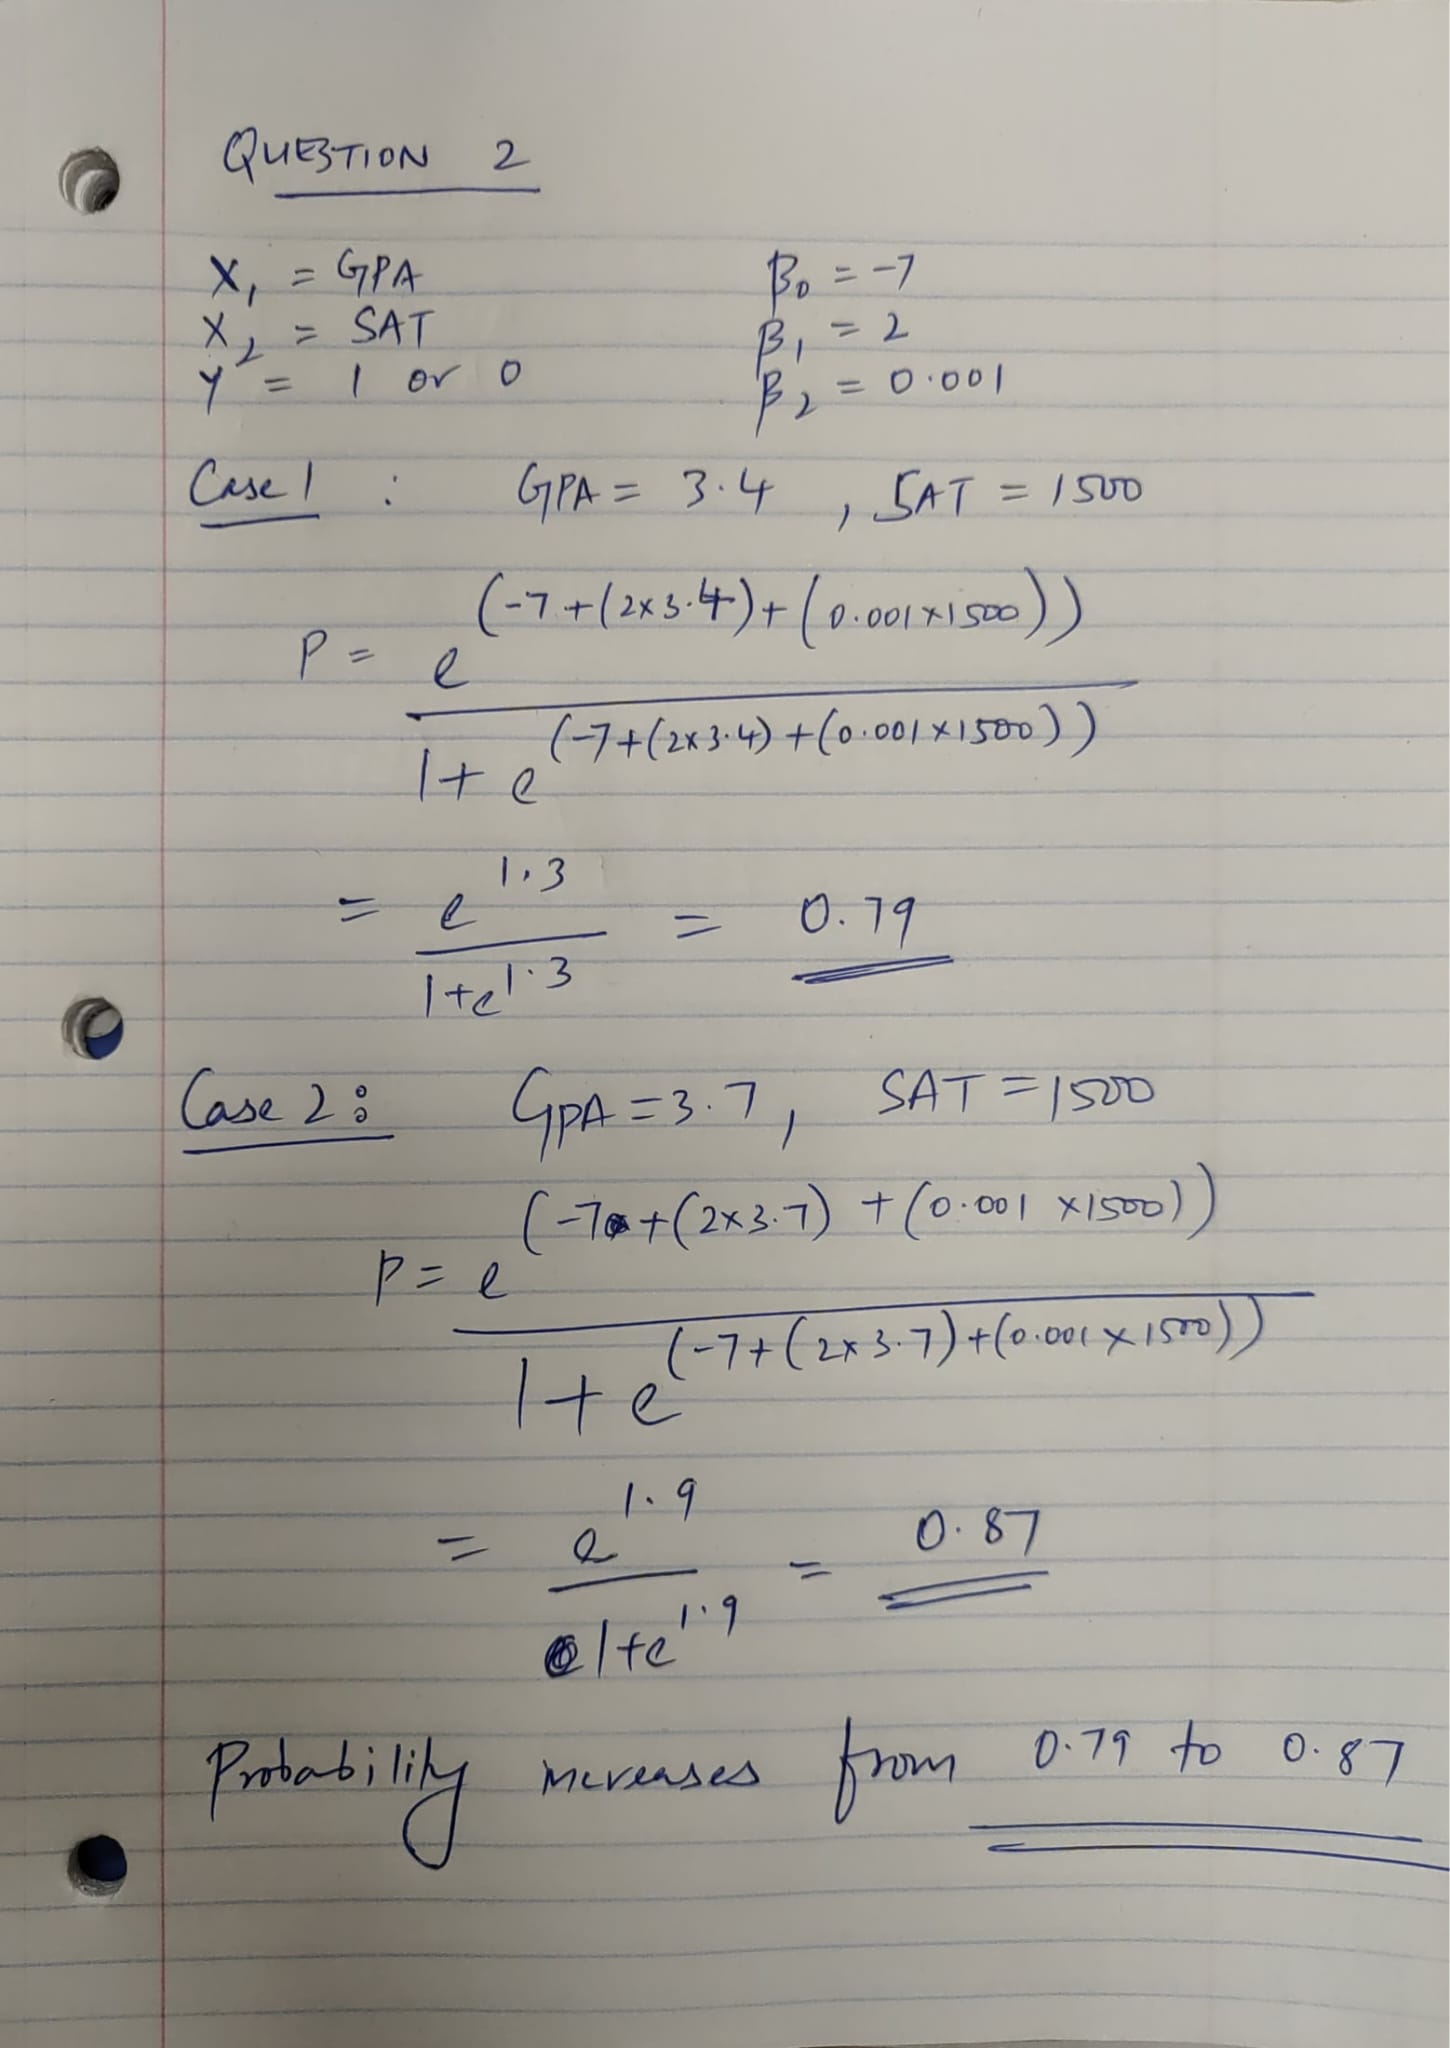 QUESTION 2
X₁ = GPA β₀ = -7
X₂ = SAT β₁ = 2
Y = 1 or 0 β₂ = 0.001
Case 1 : GPA = 3.4 , SAT = 1500
(-7+(2×3.4)+(0.001×1500))
P = e
1+ e (-7+(2×3.4)+(0.001×1500))
1.3
= e = 0.79
1+e 1.3
Case 2: GPA = 3.7, SAT = 1500
(-7+(2×3.7) + (0.001 ×1500))
P = e
1+ e (-7+(2×3.7)+(0.001×1500))
1.9
= e = 0.87
1+e 1.9
Probability increases from 0.79 to 0.87